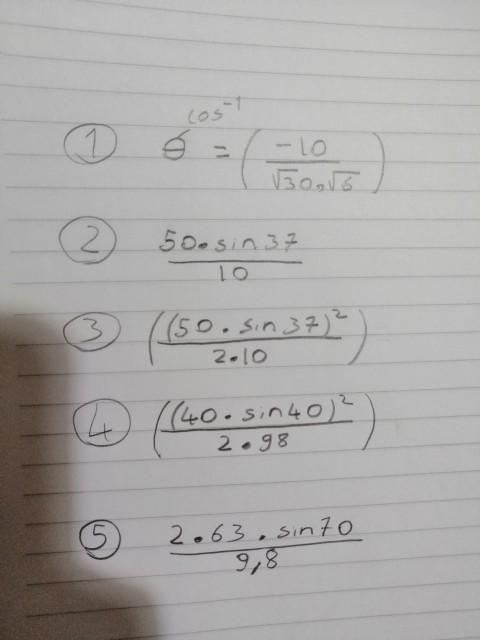 ① θ = cos⁻¹ (-10 / √30.√6)
② 50.sin37 / 10
③ ((50.sin37)² / 2.10)
④ ((40.sin40)² / 2.98)
⑤ 2.63.sin70 / 9,8